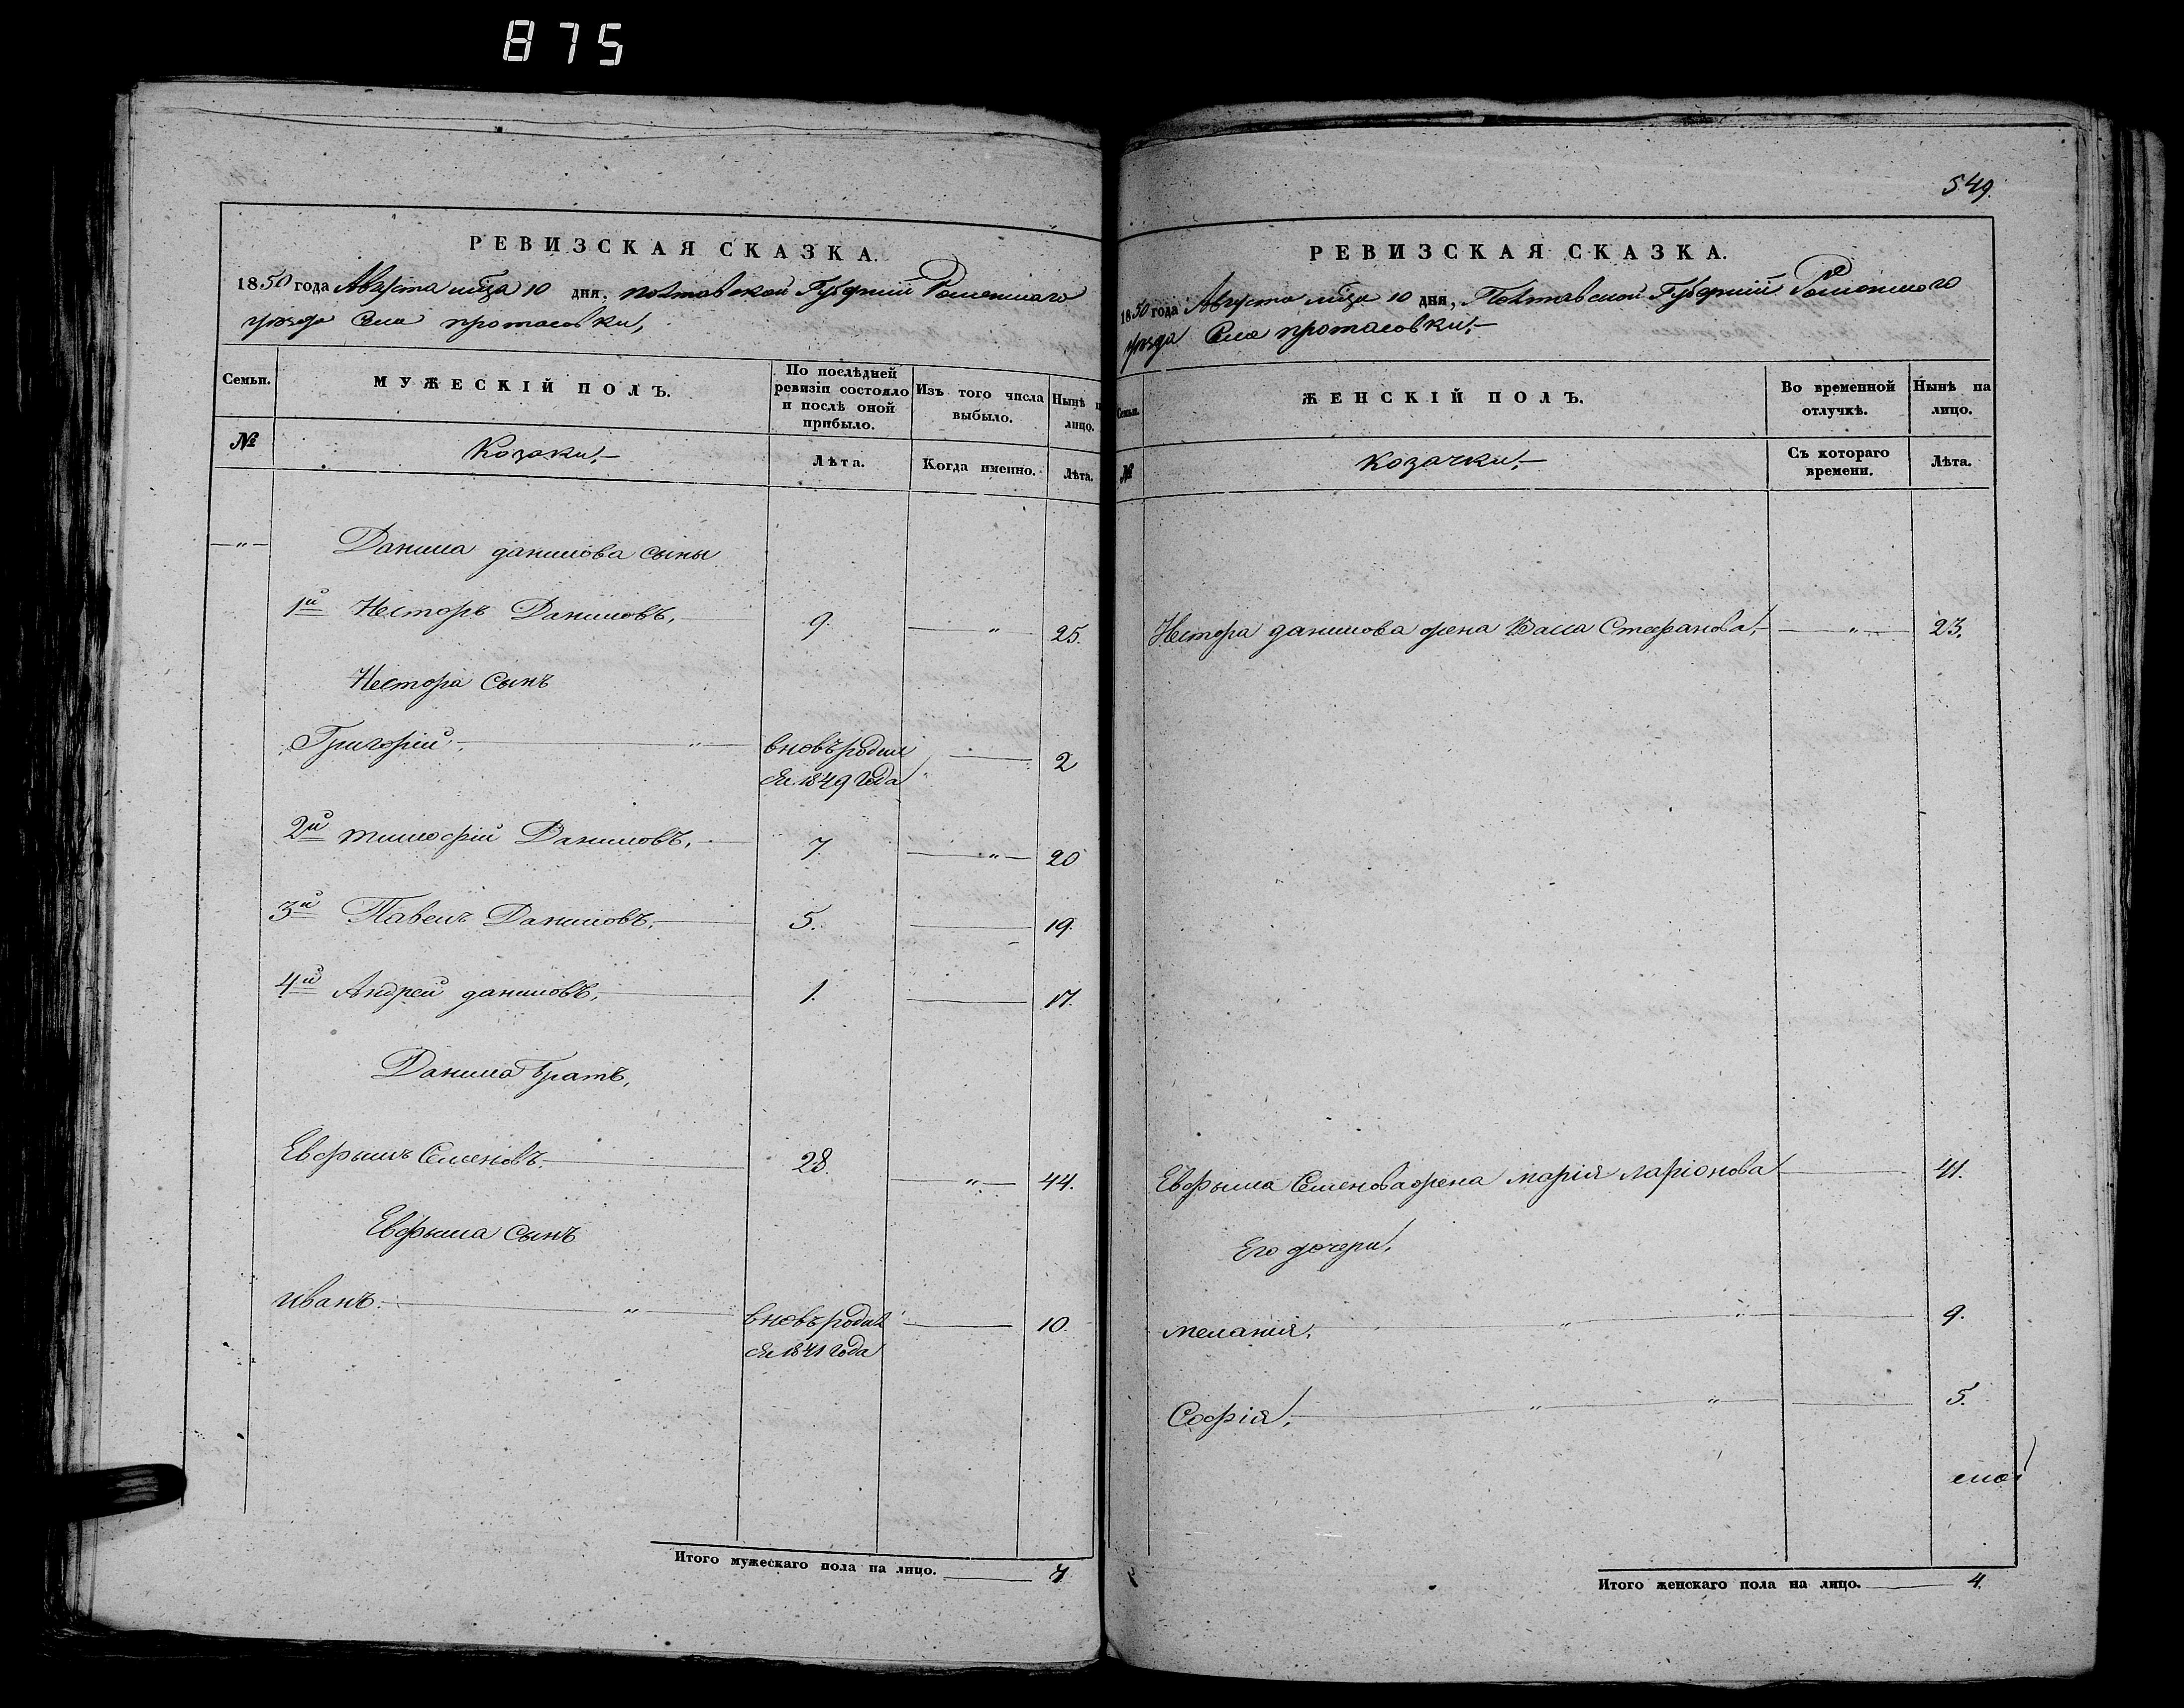 875
РЕВИЗСКАЯ СКАЗКА.
1850 года Августа мѣца 10 дня, полтавской Губерніи Роменскаго
уѣзда Села протасовки,
Семьи.
МУЖЕСКІЙ ПОЛЪ.
По послѣдней ревизіи состояло и послѣ оной прибыло.
Изъ того числа выбыло.
Нынѣ на лицо.
№
Козаки,
Лѣта.
Когда именно.
Лѣта.
Данила данилова сыны
1й Несторъ Даниловъ, 9. " 25.
Нестора Сынъ
Григорій, " вновь родил
ся 1849 года 2
2й тимофій Даниловъ, 7. " 20
3й Павелъ Даниловъ, 5. 19.
4й Андрей даниловъ, 1. 17.
Данила братъ,
Евфымъ Семеновъ. 28. " 44.
Евфыма Сынъ
иванъ. " вновь родил
ся 1841 года 10.
Итого мужескаго пола на лицо. 7
549.
РЕВИЗСКАЯ СКАЗКА.
1850 года Августа мѣца 10 дня, Полтавской Губерніи Роменскаго
уѣзда Села протасовки,
Семьи.
ЖЕНСКІЙ ПОЛЪ.
Во временной отлучкѣ.
Нынѣ на лицо.
№
козачки,
Съ котораго времени.
Лѣта.
Нестора данилова жена Васса Стефанова, " 23.
Евфыма Семенова жена марія ларіонова 41.
Его дочери,
меланія, " " 9.
Софія, " " 5.
Итого женскаго пола на лицо. 4.